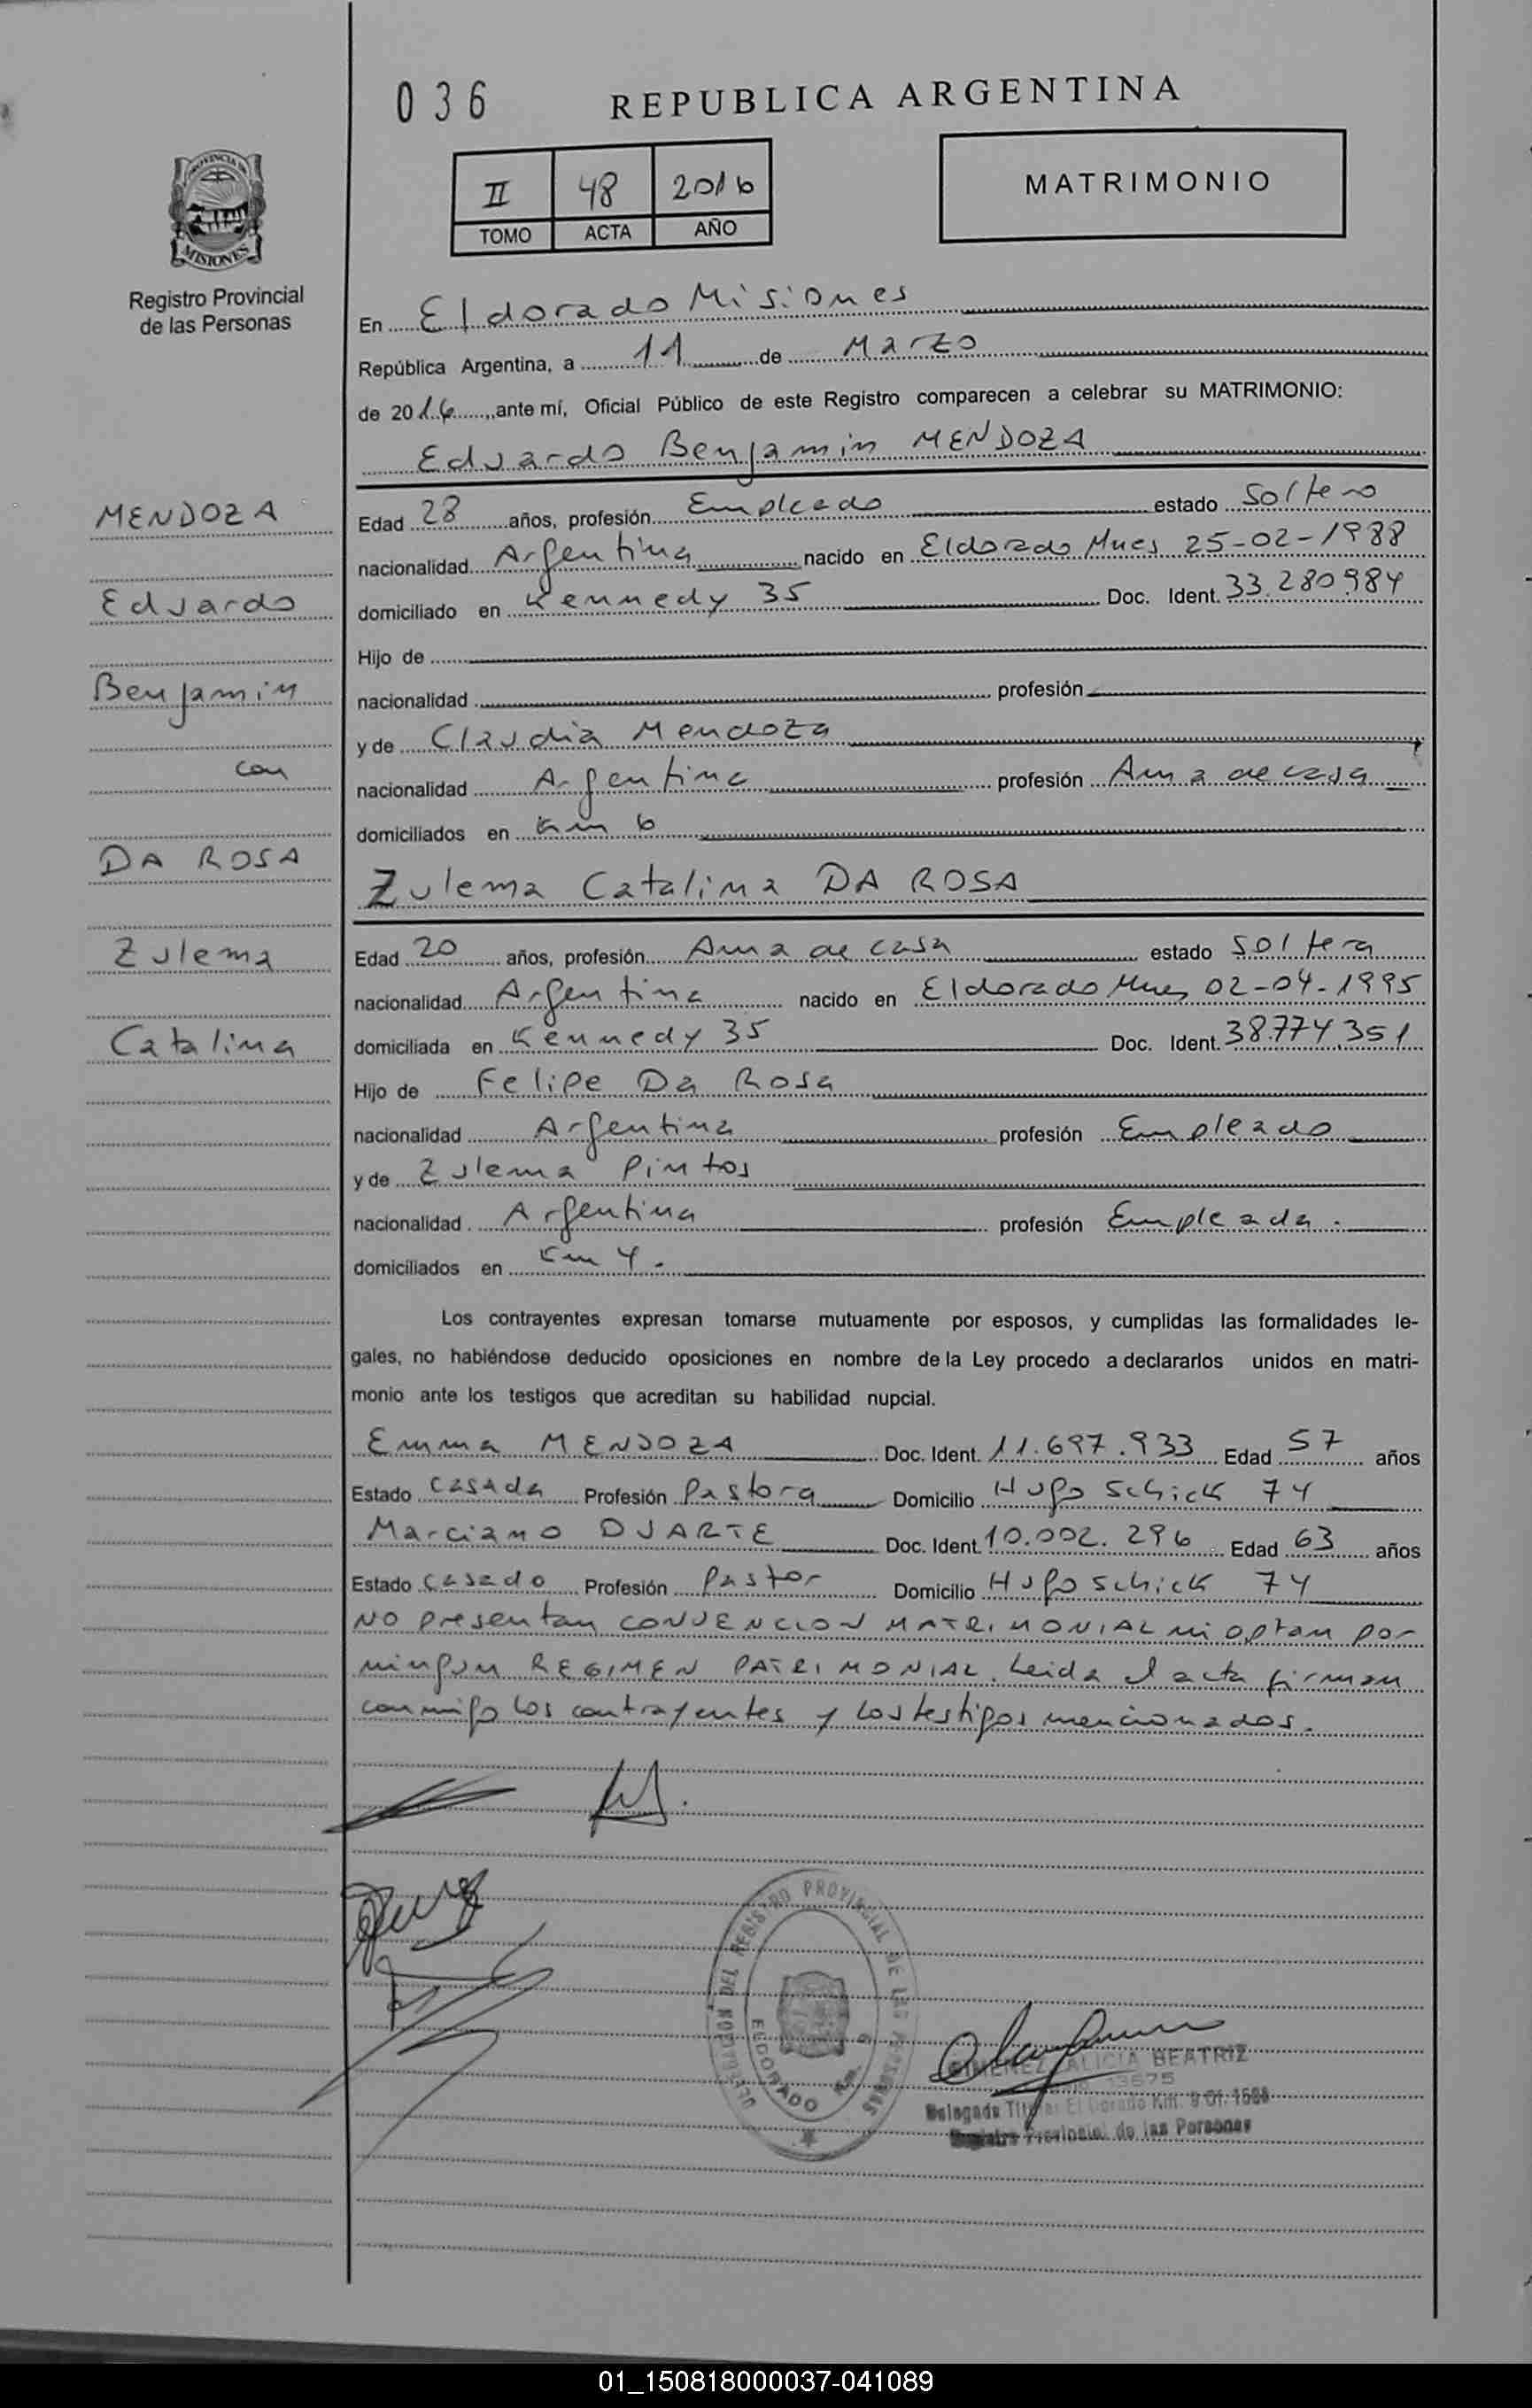 036
REPUBLICA ARGENTINA
PROVINCIA DE
MISIONES
II 48 2016
TOMO ACTA AÑO
MATRIMONIO
Registro Provincial
de las Personas
En Eldorado Misiones
República Argentina, a 11 de Marzo
de 2016, ante mí, Oficial Público de este Registro comparecen a celebrar su MATRIMONIO:
Eduardo Benjamin MENDOZA
MENDOZA
Eduardo
Benjamin
con
DA ROSA
Zulema
Catalina
Edad 28 años, profesión Empleado estado Soltero
nacionalidad Argentina nacido en Eldorado Mnes 25-02-1988
domiciliado en Kennedy 35 Doc. Ident. 33.280.984
Hijo de
nacionalidad profesión
y de Claudia Mendoza
nacionalidad Argentina profesión Ama de casa
domiciliados en Km 6
Zulema Catalina DA ROSA
Edad 20 años, profesión Ama de casa estado soltera
nacionalidad Argentina nacido en Eldorado Mnes 02-04-1995
domiciliada en Kennedy 35 Doc. Ident. 38.774.351
Hijo de Felipe Da Rosa
nacionalidad Argentina profesión Empleado
y de Zulema Pintos
nacionalidad Argentina profesión Empleada.
domiciliados en Km 4.
Los contrayentes expresan tomarse mutuamente por esposos, y cumplidas las formalidades le-
gales, no habiéndose deducido oposiciones en nombre de la Ley procedo a declararlos unidos en matri-
monio ante los testigos que acreditan su habilidad nupcial.
Emma MENDOZA Doc. Ident. 11.697.933 Edad 57 años
Estado Casada Profesión Pastora Domicilio Hugo Schick 74
Marciano DUARTE Doc. Ident. 10.002.296 Edad 63 años
Estado Casado Profesión Pastor Domicilio Hugo Schick 74
NO presentan CONVENCION MATRIMONIAL ni optan por
ningun REGIMEN PATRIMONIAL. Leida el acta firman
conmigo los contrayentes y los testigos mencionados.
DEL REGISTRO PROVINCIAL DE LAS PERSONAS
ELDORADO Km. 9
GIMENEZ ALICIA BEATRIZ
13675
Delegada Titular El Dorado Km. 9 Of. 1586
Registro Provincial de las Personas
01_150818000037-041089